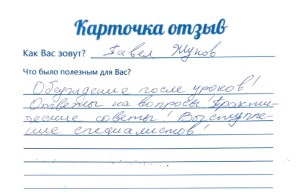 Карточка отзыв
Как Вас зовут? Павел Жуков
Что было полезным для Вас?
Обсуждение после уроков!
Ответы на вопросы! Практи-
ческие советы! Выступле-
ние специалистов!